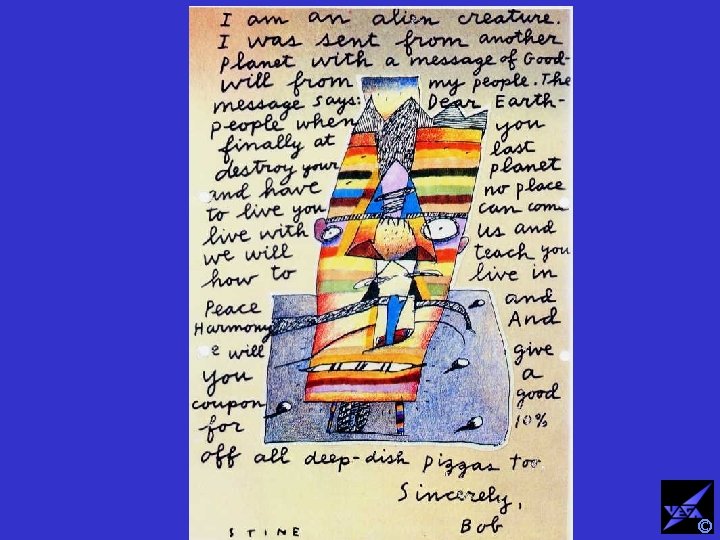 I am an alien creature.
I was sent from another
planet with a message of Good-
will from my people. The
message says: Dear Earth-
people when you
finally at last
destroy your planet
and have no place
to live you can come
live with us and
we will teach you
how to live in
Peace and
Harmony And
e will give
you a
coupon good
for 10%
off all deep-dish pizzas too
Sincerely,
Bob
STINE
VEGA
©